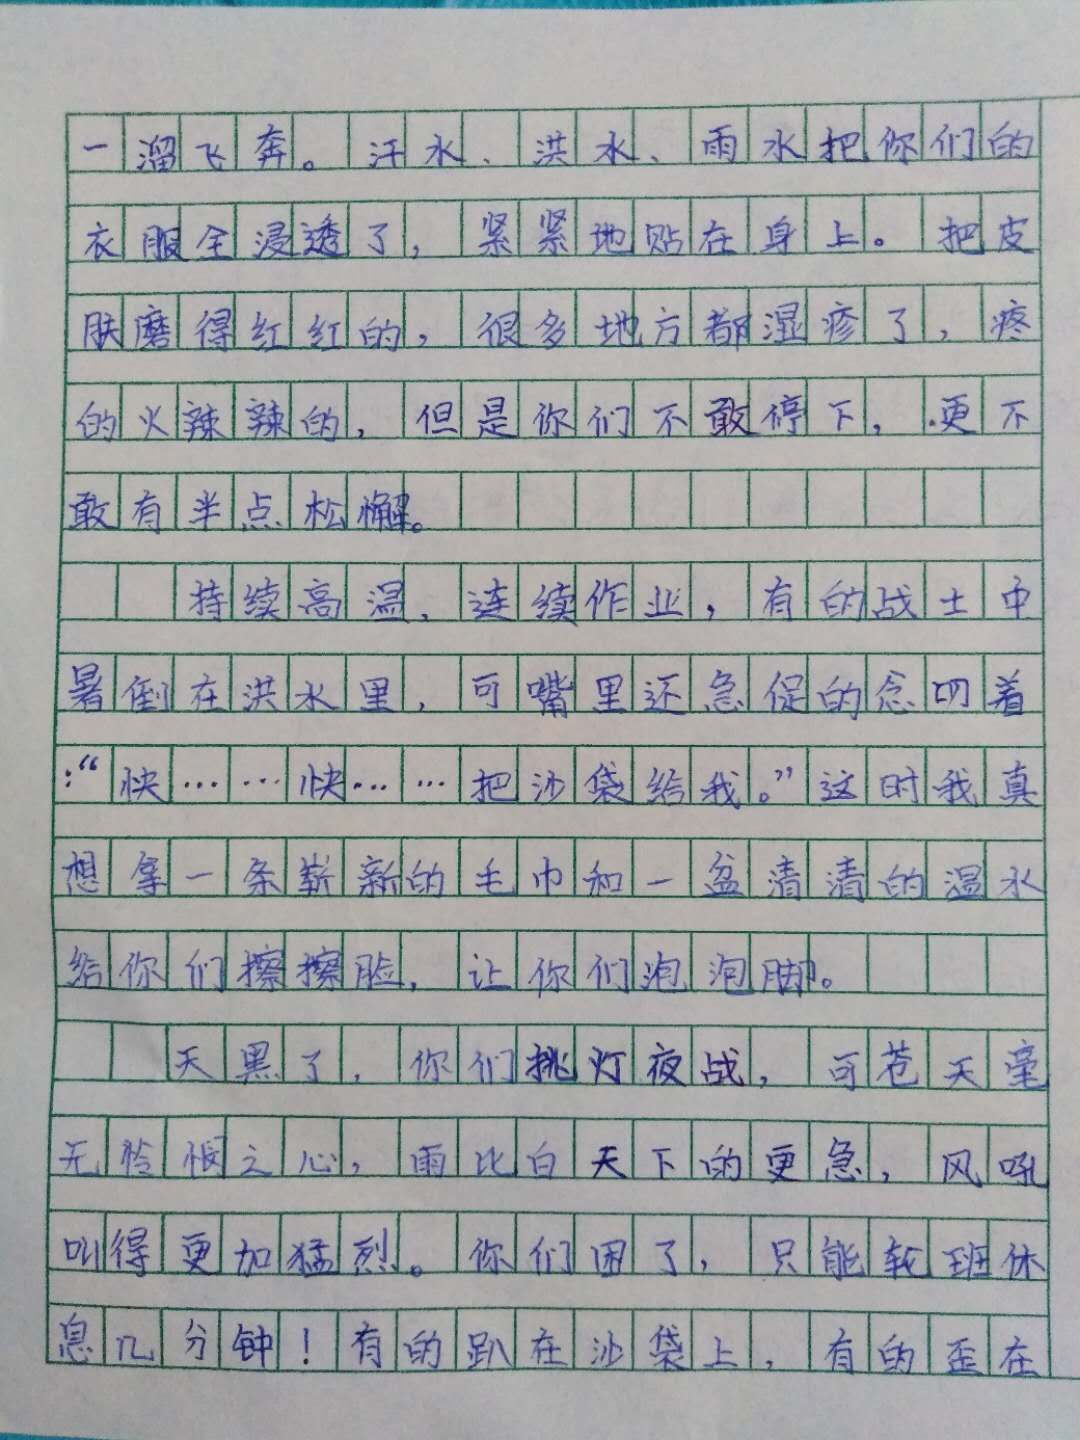 一溜飞奔。汗水、洪水、雨水把你们的
衣服全浸透了，紧紧地贴在身上。把皮
肤磨得红红的，很多地方都湿疹了，疼
的火辣辣的，但是你们不敢停下，更不
敢有半点松懈。
持续高温，连续作业，有的战士中
暑倒在洪水里，可嘴里还急促的念叨着
：“快……快……把沙袋给我。”这时我真
想拿一条崭新的毛巾和一盆清清的温水
给你们擦擦脸，让你们泡泡脚。
天黑了，你们挑灯夜战，可苍天毫
无怜悯之心，雨比白天下的更急，风吼
叫得更加猛烈。你们困了，只能轮班休
息几分钟！有的趴在沙袋上，有的歪在